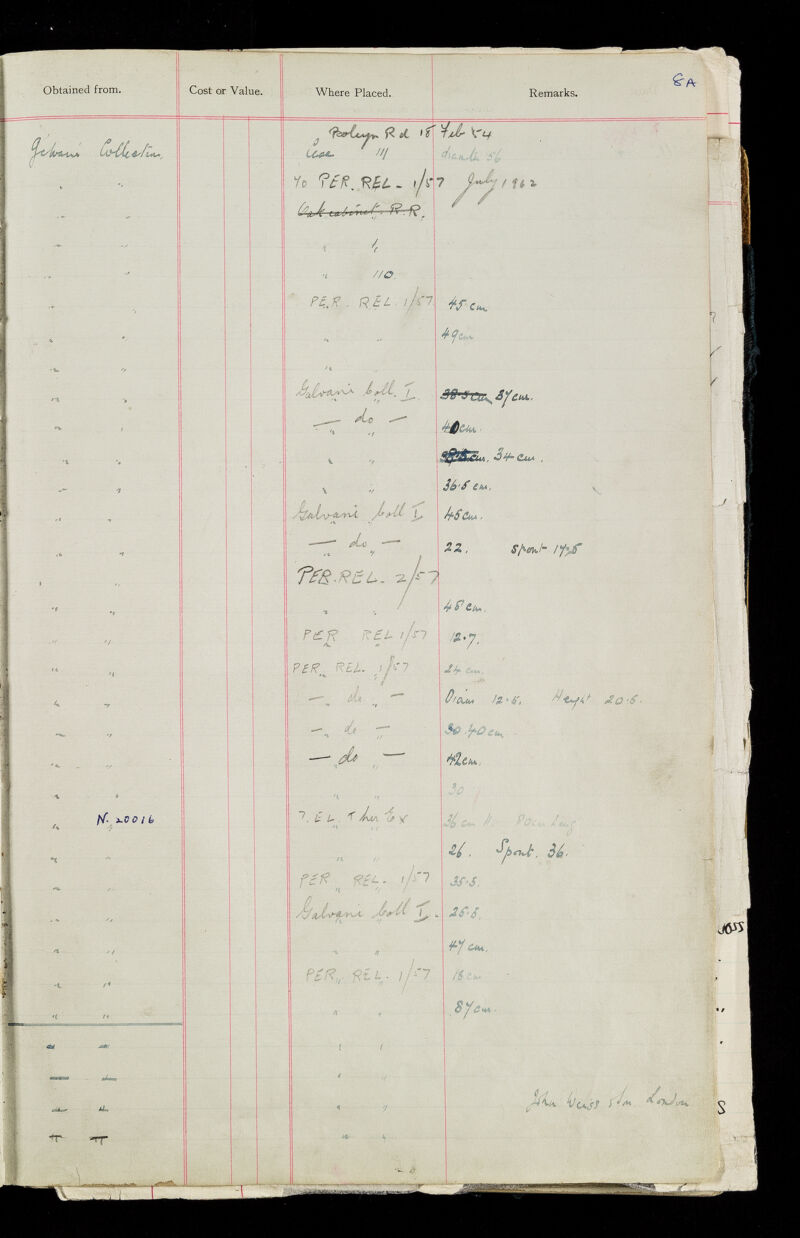 8A
Obtained from. Cost or Value. Where Placed. Remarks.
Rd 18 Feb 54
Collection
Case 111 56
To PER. REL - 1/57 July 1962
" " Oak cabinet. R.R.
" "
" " " 110.
" " PER. REL. 1/57 45 cm
" " " " 49 cm
" " "
" " Galvani Coll. I. 38.5 cm 37 cm.
" " — do — 40 cm.
" " " " 34 cm.
" " " " 36.5 cm.
" " Galvani Coll I 45 cm.
" " — do — 22. Spout
" " PER. REL. 2/57
" " " " 48 cm.
" " PER REL 1/57 12.7.
" " PER. REL. 1/57 24 cm.
" " — do — Diam 12.5. Height 20.5.
" " — do — 30.40 cm
" " — do — 42 cm.
" " " " 30
" N. 20016 36 cm
" " " " 26. Spout. 36.
" " PER REL. 1/57 35.5.
" " Galvani Coll I. 25.5.
" " " " 47 cm.
" " PER. REL. 1/57 18 cm
" " " " 87 cm.
" " " "
" " " "
" " " " John Weiss & Son London
" " " "